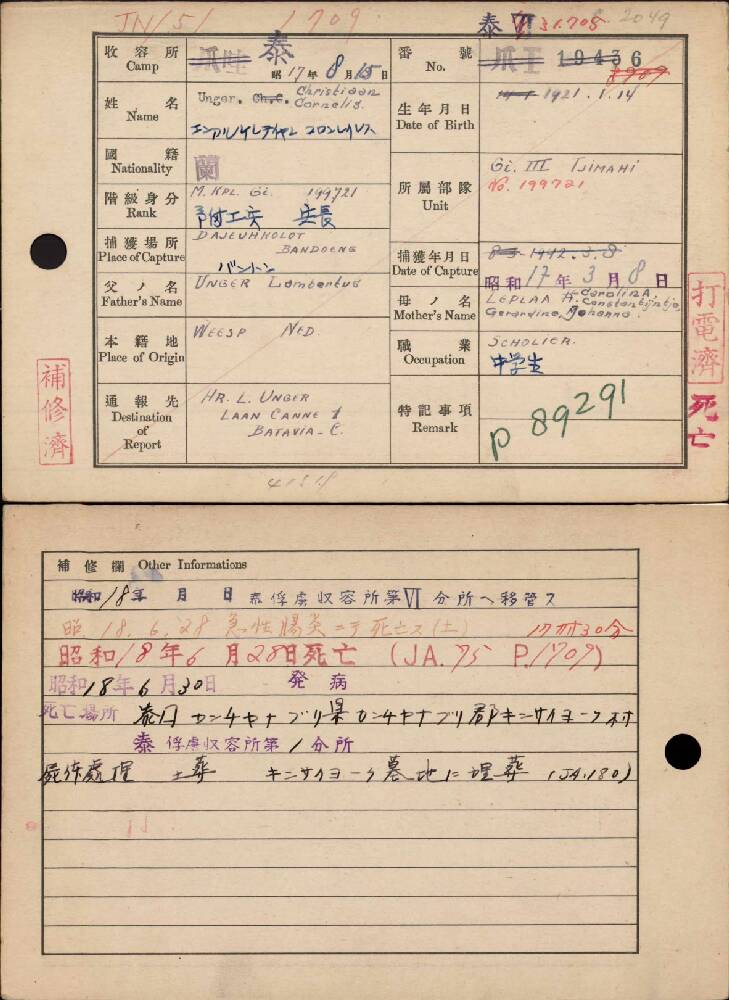 JN/51 1709 泰 VI 31.705 2049
收容所 Camp 爪哇 泰 昭17年8月15日
番號 No. 爪王 19436 8909
姓名 Name Unger. Ch.C. Christiaan Cornelis.
生年月日 Date of Birth 1921.1.14
國籍 Nationality 蘭
階級身分 Rank M. KPL. Gi. 199721
所屬部隊 Unit Gi. III TJIMAHI
No. 199721
捕獲場所 Place of Capture DAJEUHKOLOT
BANDOENG
バンドン
捕獲年月日 Date of Capture 1942.3.8
昭和17年3月8日
父ノ名 Father's Name UNGER Lambertus
母ノ名 Mother's Name LEPLAA H. Carolina, Constantijntje,
Gerardina, Johanna.
本籍地 Place of Origin WEESP NED.
職業 Occupation SCHOLIER.
中学生
通報先 Destination of Report HR. L. UNGER
LAAN CANNE 1
BATAVIA-C.
特記事項 Remark P 89291
補修濟
打電濟 死亡
補修欄 Other Informations
昭和18年 月 日 泰俘虜収容所第VI分所ヘ移管ス
昭18.6.28 急性腸炎ニテ死亡ス(土) 17時30分
昭和18年6月28日死亡 (JA.75 P.1709)
昭和18年6月30日 発病
死亡場所 泰国カンチヤナブリ県カンチヤナブリ郡キンサイヨーク村
泰俘虜収容所第1分所
屍体處理 土葬 キンサイヨーク墓地に埋葬 (JA.180)